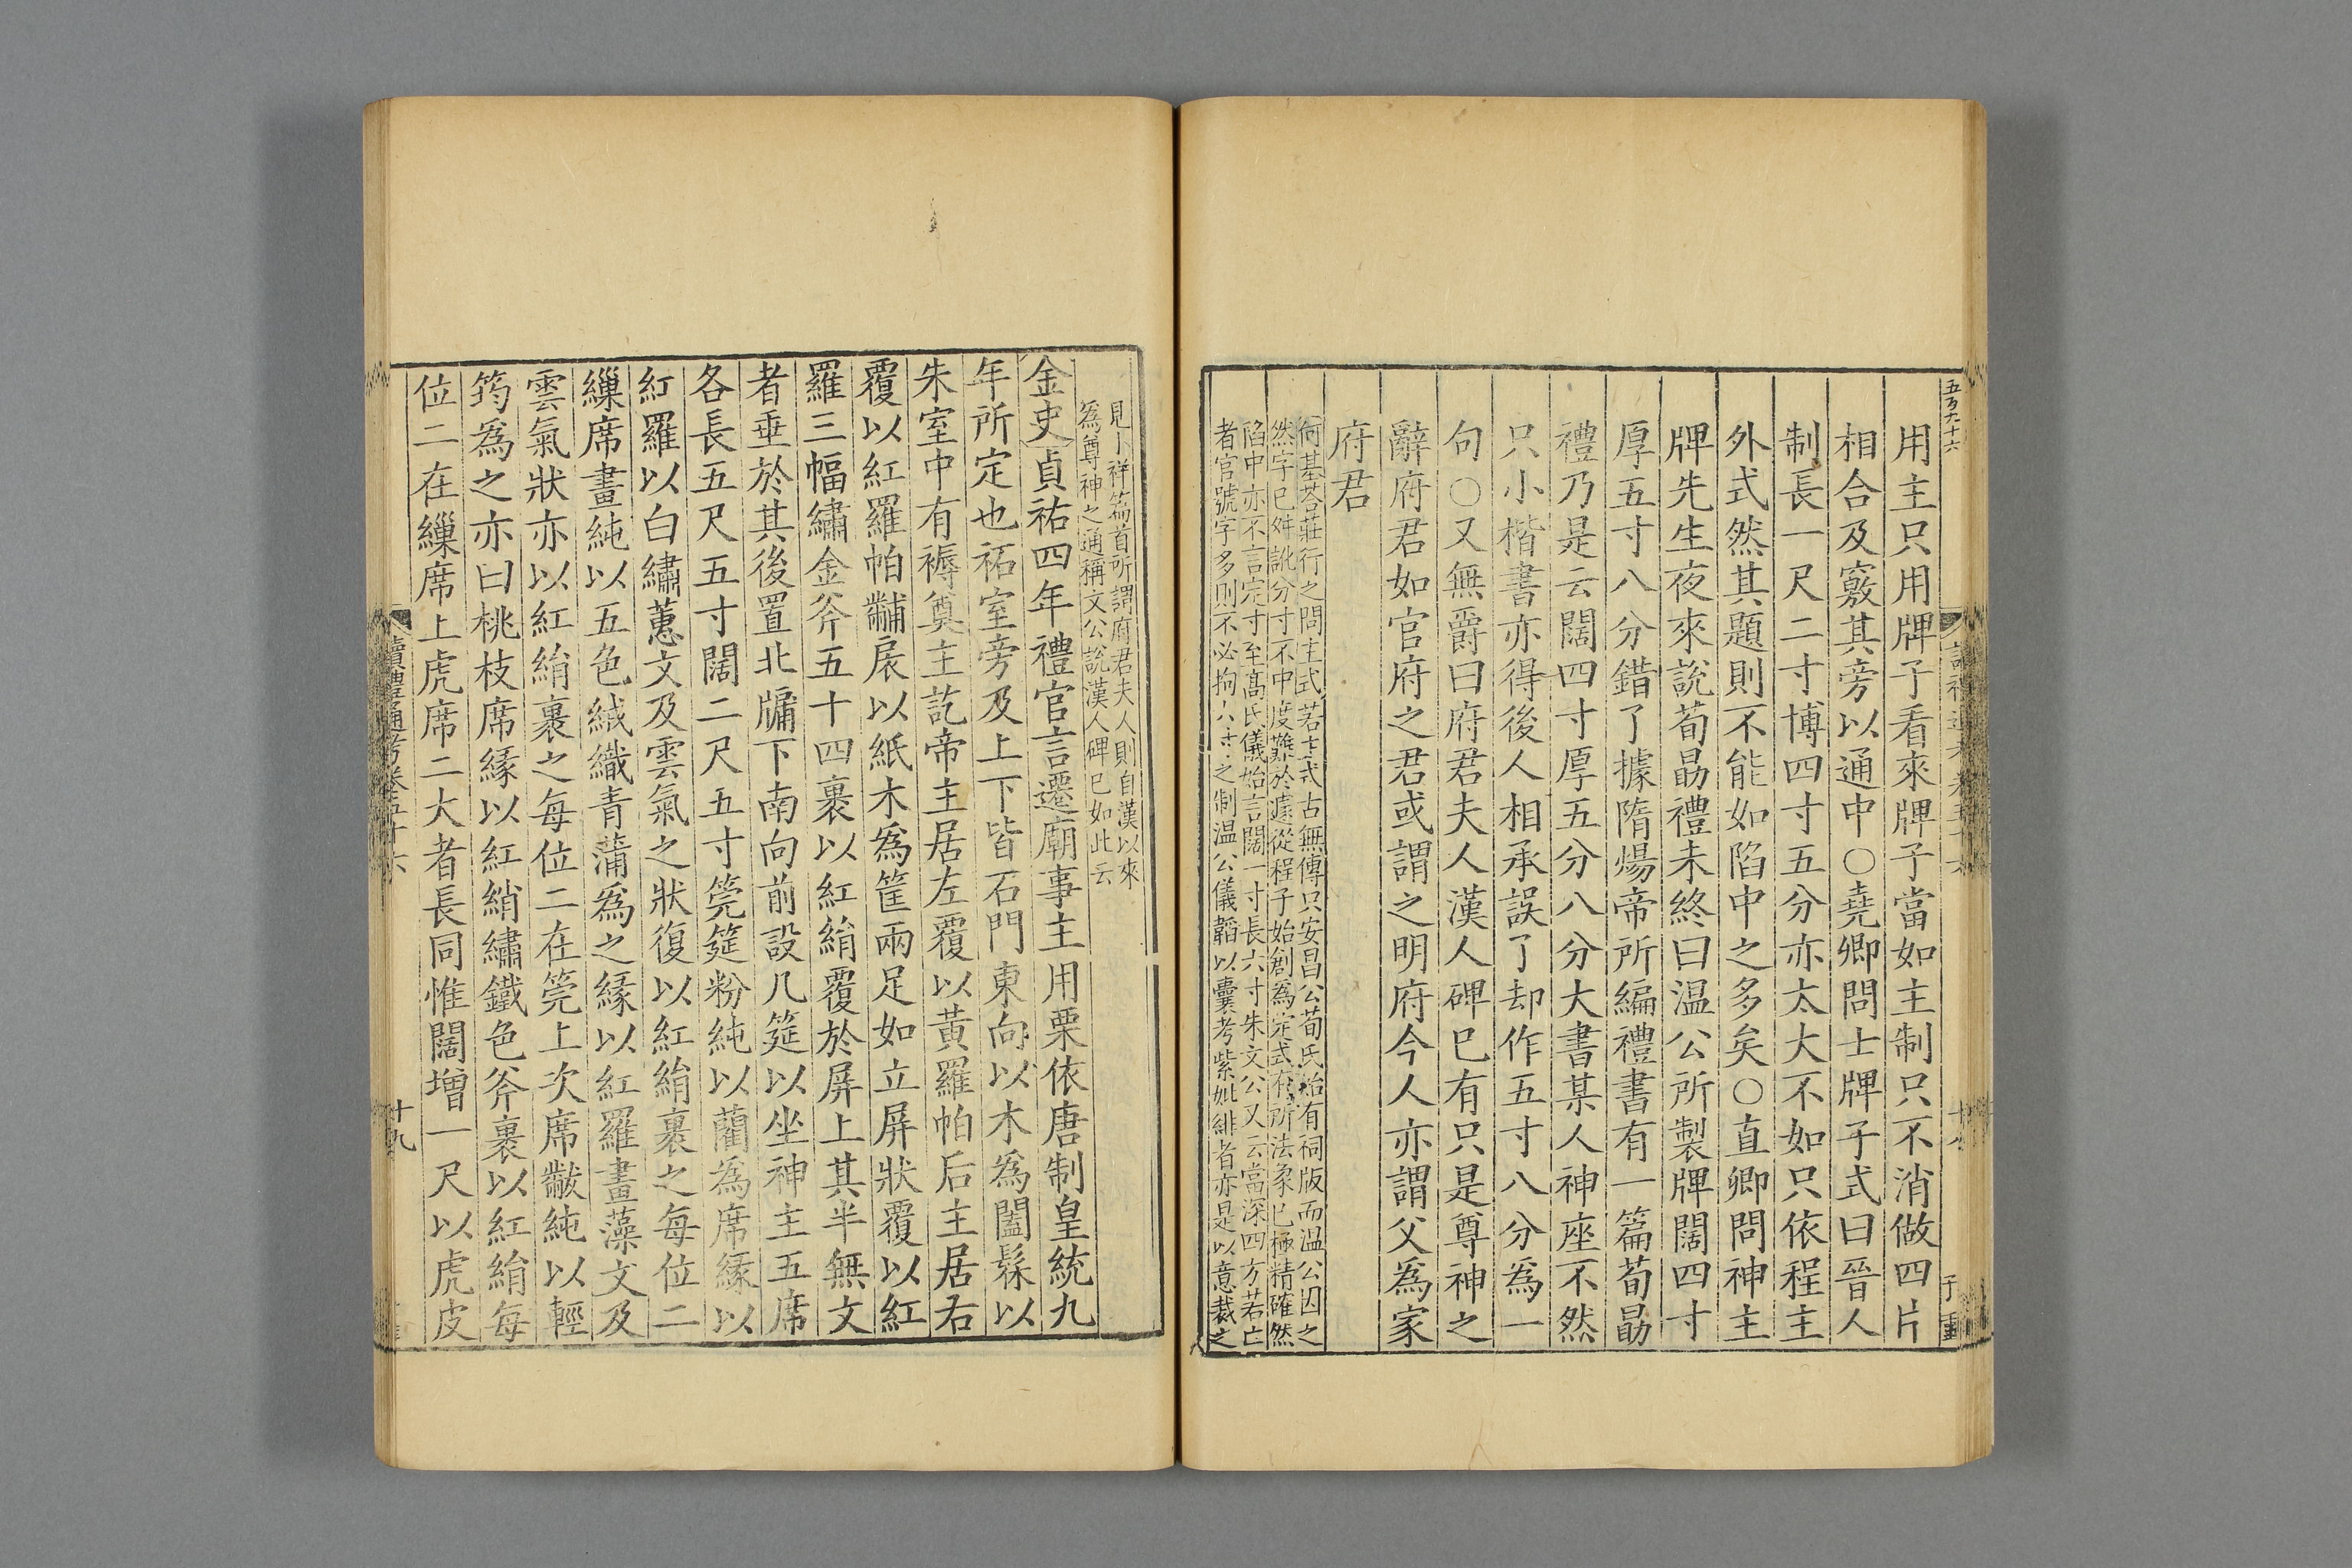 五百九十六
用主只用牌子看來牌子當如主制只不消做四片
相合及竅其旁以通中○堯卿問士牌子式曰晉人
制長一尺二寸博四寸五分亦太大不如只依程主
外式然其題則不能如陷中之多矣○直卿問神主
牌先生夜來說荀勗禮未終曰温公所製牌闊四寸
厚五寸八分錯了據隋煬帝所編禮書有一篇荀勗
禮乃是云闊四寸厚五分八分大書某人神座不然
只小楷書亦得後人相承誤了却作五寸八分為一
句○又無爵曰府君夫人漢人碑已有只是尊神之
辭府君如官府之君或謂之明府今人亦謂父為家
府君
何基荅莊行之問主式若士式古無傳只安昌公荀氏始有祠版而温公因之
然字已舛訛分寸不中度難於遽從程子始創為定式有所法象已極精確然
陷中亦不言定寸至高氏儀始言闊一寸長六寸朱文公又云當深四方若亡
者官號字多則不必拘六寸之制温公儀韜以囊考紫妣緋者亦是以意裁之
見卜祥篇首所謂府君夫人則自漢以來
為尊神之通稱文公說漢人碑已如此云
金史貞祐四年禮官言遷廟事主用栗依唐制皇統九
年所定也祏室旁及上下皆石門東向以木為闔髹以
朱室中有褥奠主訖帝主居左覆以黃羅帕后主居右
覆以紅羅帕黼扆以紙木為筐兩足如立屏狀覆以紅
羅三幅繡金斧五十四裹以紅絹覆於屏上其半無文
者垂於其後置北牖下南向前設几筵以坐神主五席
各長五尺五寸闊二尺五寸莞筵粉純以藺為席緣以
紅羅以白繡蕙文及雲氣之狀復以紅絹裹之每位二
繅席畫純以五色絨織青蒲為之緣以紅羅畫藻文及
雲氣狀亦以紅絹裹之每位二在莞上次席黻純以輕
筠為之亦曰桃枝席緣以紅綃繡鐵色斧裹以紅絹每
位二在繅席上虎席二大者長同惟闊增一尺以虎皮
讀禮通考卷五十六
十九